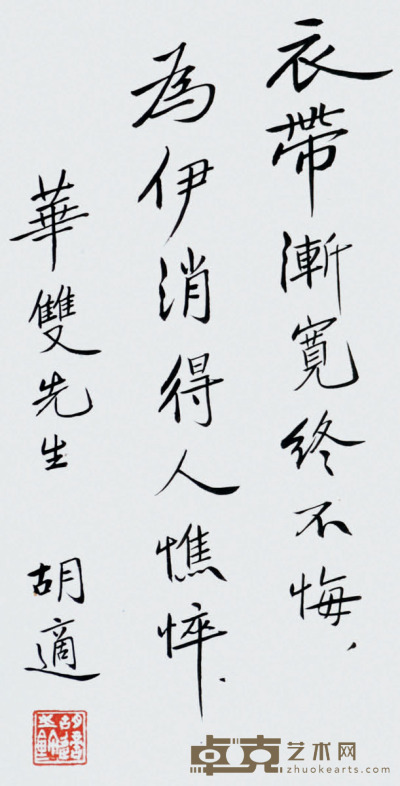 衣帶漸寬終不悔、
為伊消得人憔悴．
華雙先生 胡適
卓克艺术网
zhuokearts.com